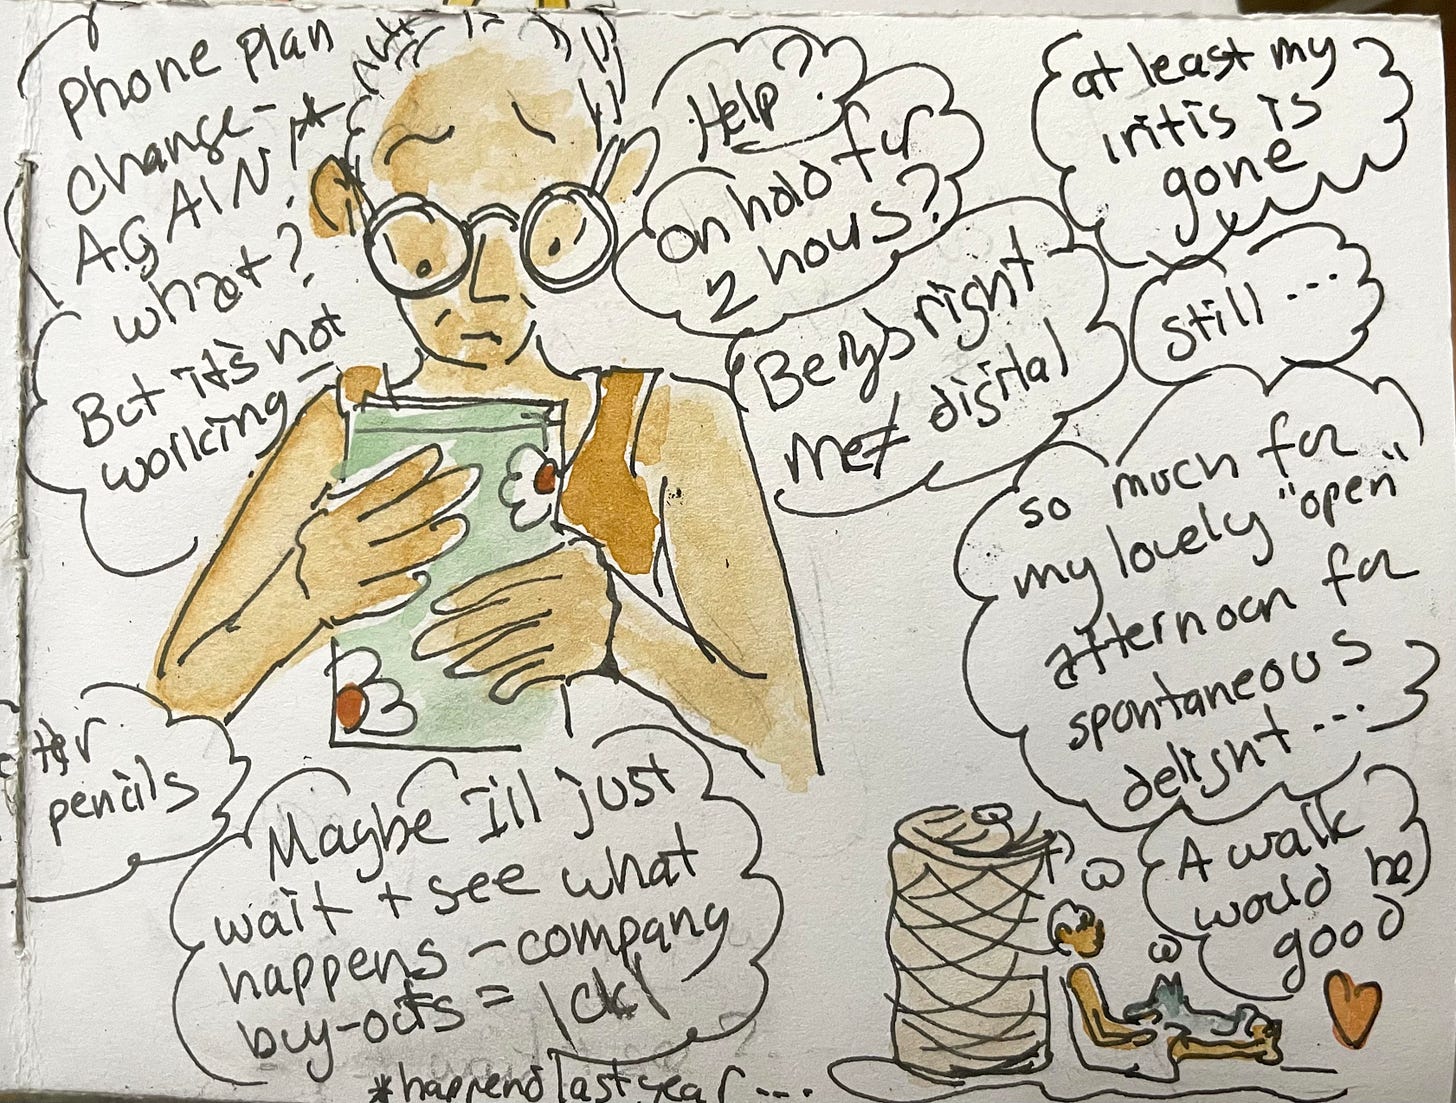 phone plan
change -
AGAIN!*
what?
But it's not
working -
Help?
on hold for
2 hours?
at least my
iritis is
gone
Still ...
right
me ≠ digital
so much for
my lovely "open"
afternoon for
spontaneous
delight ...
A walk
would be
good
pencils
Maybe I'll just
wait + see what
happens - company
buy-outs = ick!
*happend last year ...